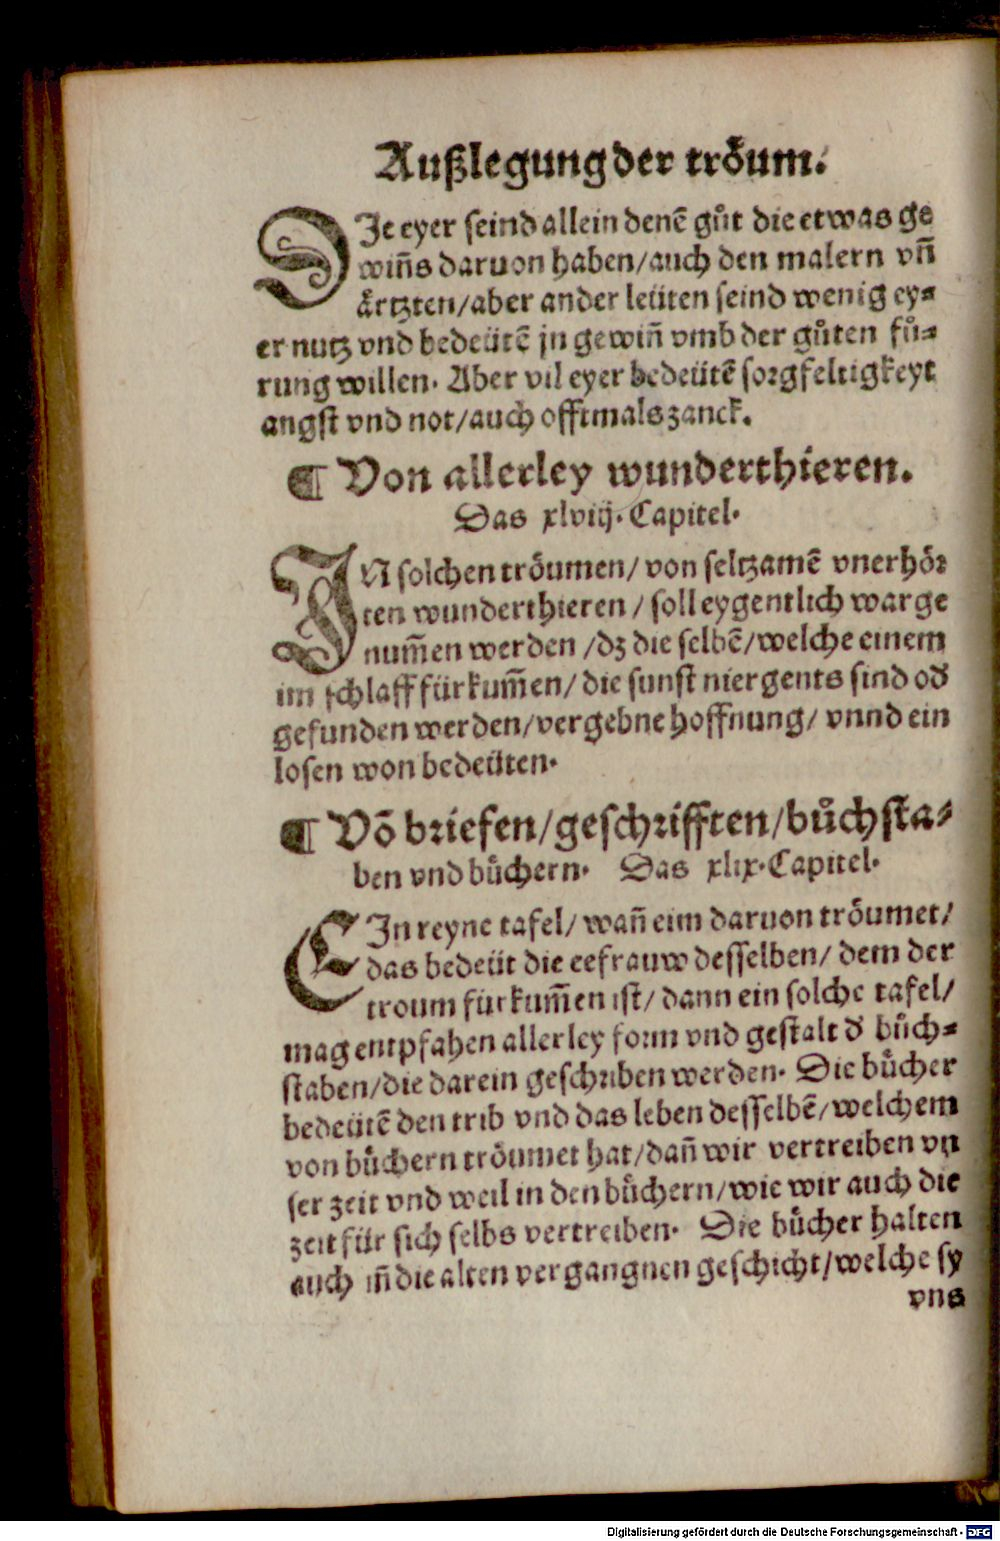 Außlegung der tröum.
DJe eyer seind allein denē gůt die etwas ge
wiñs daruon haben/auch den malern vñ
ärtzten/aber ander leüten seind wenig ey⸗
er nutz vnd bedeütē jn gewiñ vmb der gůten fů⸗
rung willen. Aber vil eyer bedeütē sorgfeltigkeyt
angst vnd not/auch offtmals zanck.
¶ Von allerley wunderthieren.
Das xlviij. Capitel.
JN solchen tröumen/ von seltzamē vnerhör
ten wunderthieren / soll eygentlich warge
num̄en werden /dz die selbē/welche einem
im schlaff fürkum̄en/ die sunst niergents sind oď
gefunden werden/vergebne hoffnung/ vnnd ein
losen won bedeüten.
¶ Võ briefen/geschrifften/bůchsta⸗
ben vnd bůchern. Das xlix. Capitel.
EJn reyne tafel/ wañ eim daruon tröumet/
das bedeüt die eefrauw desselben/ dem der
troum fürkum̄en ist/ dann ein solche tafel/
mag entpfahen allerley form vnd gestalt ď bůch⸗
staben/die darein geschriben werden. Die bůcher
bedeütē den trib vnd das leben desselbē/welchem
von bůchern tröumet hat/dañ wir vertreiben vn
ser zeit vnd weil in den bůchern/wie wir auch die
zeit für sich selbs vertreiben. Die bůcher halten
auch iñ die alten vergangnen geschicht/welche sy
vns
Digitalisierung gefördert durch die Deutsche Forschungsgemeinschaft - DFG